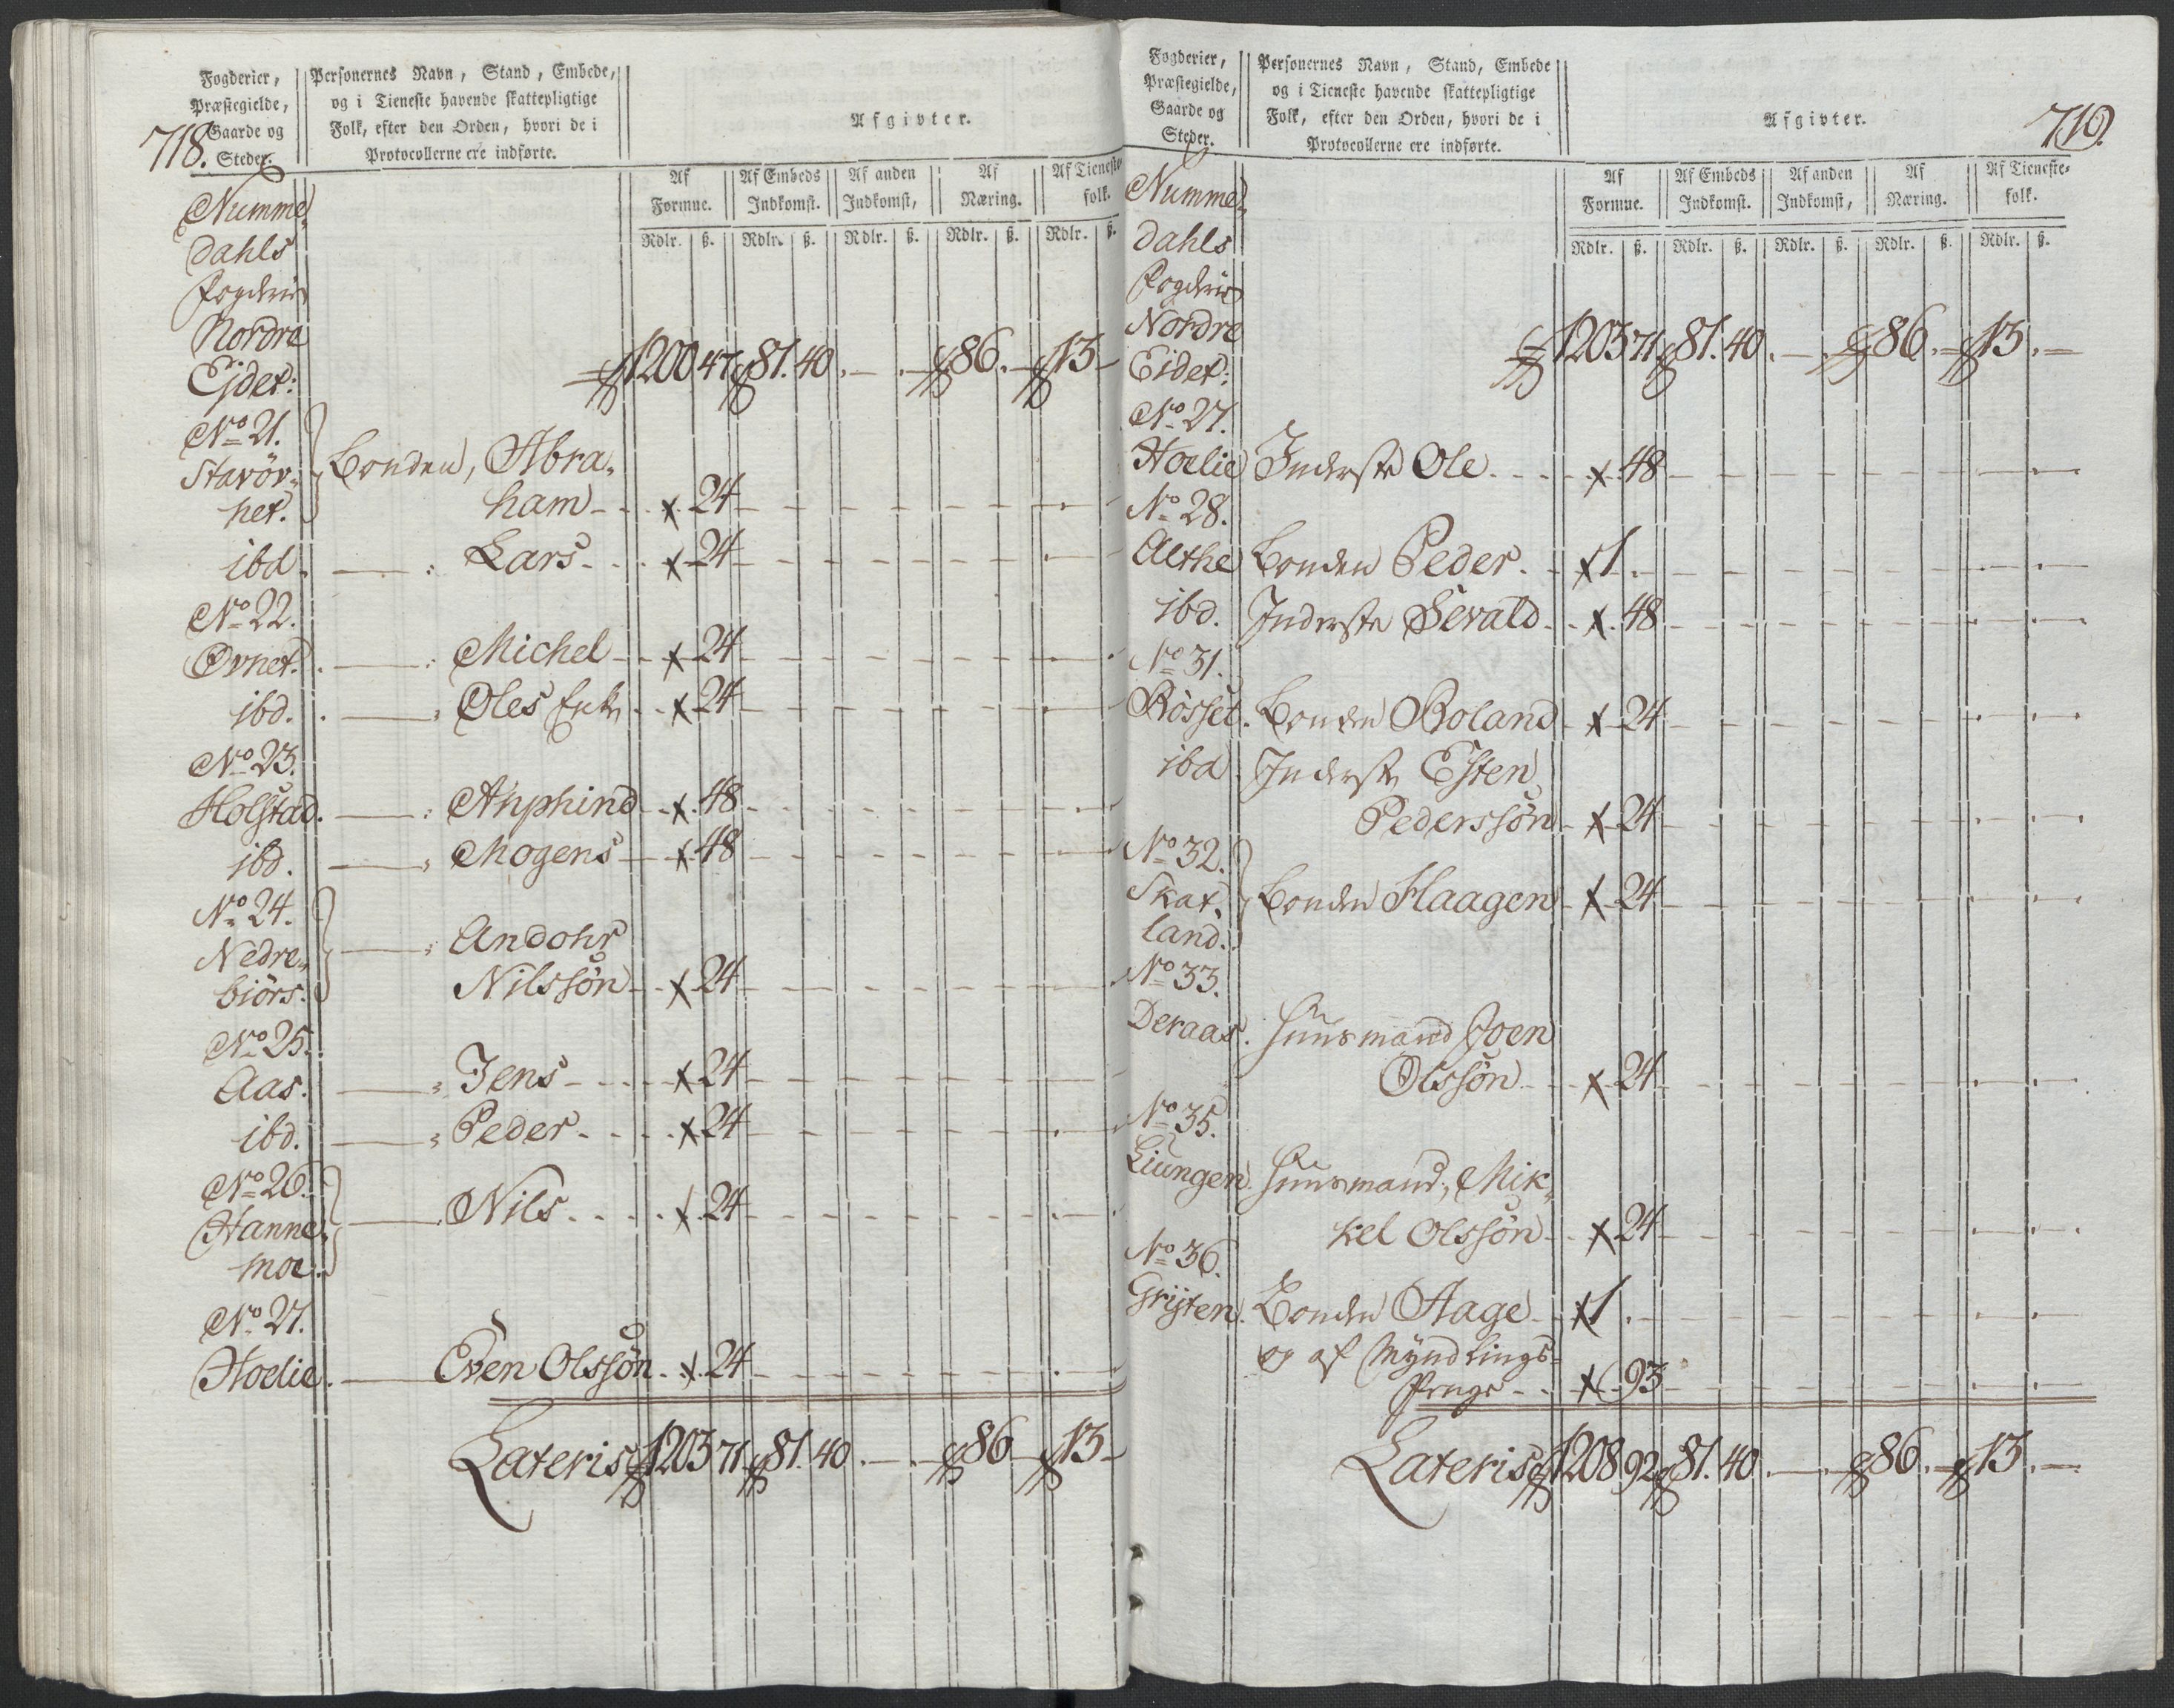 718.
Fogderier,
Præstegielde,
Gaarde og
Steder.
Personernes Navn, Stand, Embede,
og i Tieneste havende skattepligtige
Folk, efter den Orden, hvori de i
Protocollerne ere indførte.
Afgivter.
Af Formue. Af Embeds Indkomst. Af anden Indkomst, Af Næring. Af Tieneste folk.
Rdlr. ß. Rdlr. ß. Rdlr. ß. Rdlr. ß. Rdlr. ß.
Numme-
dahls
Fogderie
Nordre
Ejdet: 1200 47 81. 40. — . — 86. — 13 —
No 21.
Starör- Bonden, Abra-
het. ham - . x 24
ibd. — : Lars - . x 24
No 22.
Ovnet. — : Michel - x 24
ibd. — : Oles Enke . x 24
No 23.
Holstad. — : Anphind - x 48
ibd. — : Mogens - x 48
No 24.
Nedre- — : Andohr
biörs. Nilssön - x 24
No 25.
Aas. — : Jens - x 24
ibd. — : Peder - x 24
No 26.
Hanne- — . Nils - x 24
moe.
No 27.
Hoelie. — Even Olssön . x 24
Lateris 1203 71 81. 40. — . — 86 — 13 —
719.
Fogderier,
Præstegielde,
Gaarde og
Steder.
Personernes Navn, Stand, Embede
og i Tieneste havende skattepligtige
Folk, efter den Orden, hvori de i
Protocollerne ere indførte.
Afgivter.
Af Formue. Af Embeds Indkomst. Af anden Indkomst, Af Næring. Af Tieneste- folk.
Rdlr. ß. Rdlr. ß. Rdlr. ß. Rdlr. ß. Rdlr. ß.
Numme-
dahls
Fogderie
Nordre
Eidet: 1203 71 81. 40. — . 86. — 13. —
No 27.
Hoelie Inderste Ole - x 48
No 28.
Aethe Bonden Peder. x 1 . —
ibd. Inderste Sevald - x 48
No 31.
Rösset. Bonden Roland x 24
ibd. Inderste Esten
Pederssön x 24
No 32.
Skat- Bonden Haagen x 24
land.
No 33.
Deraas. Huusmand Joen
Olssön - x 24
No 35.
Liungen. Huusmand, Mik-
kel Olssön - x 24
No 36.
Grijten. Bonden Aage x 1 . —
og af Myndlings-
Penge - x 93
Lateris 1208 92 81. 40. — . 86. — 13. —